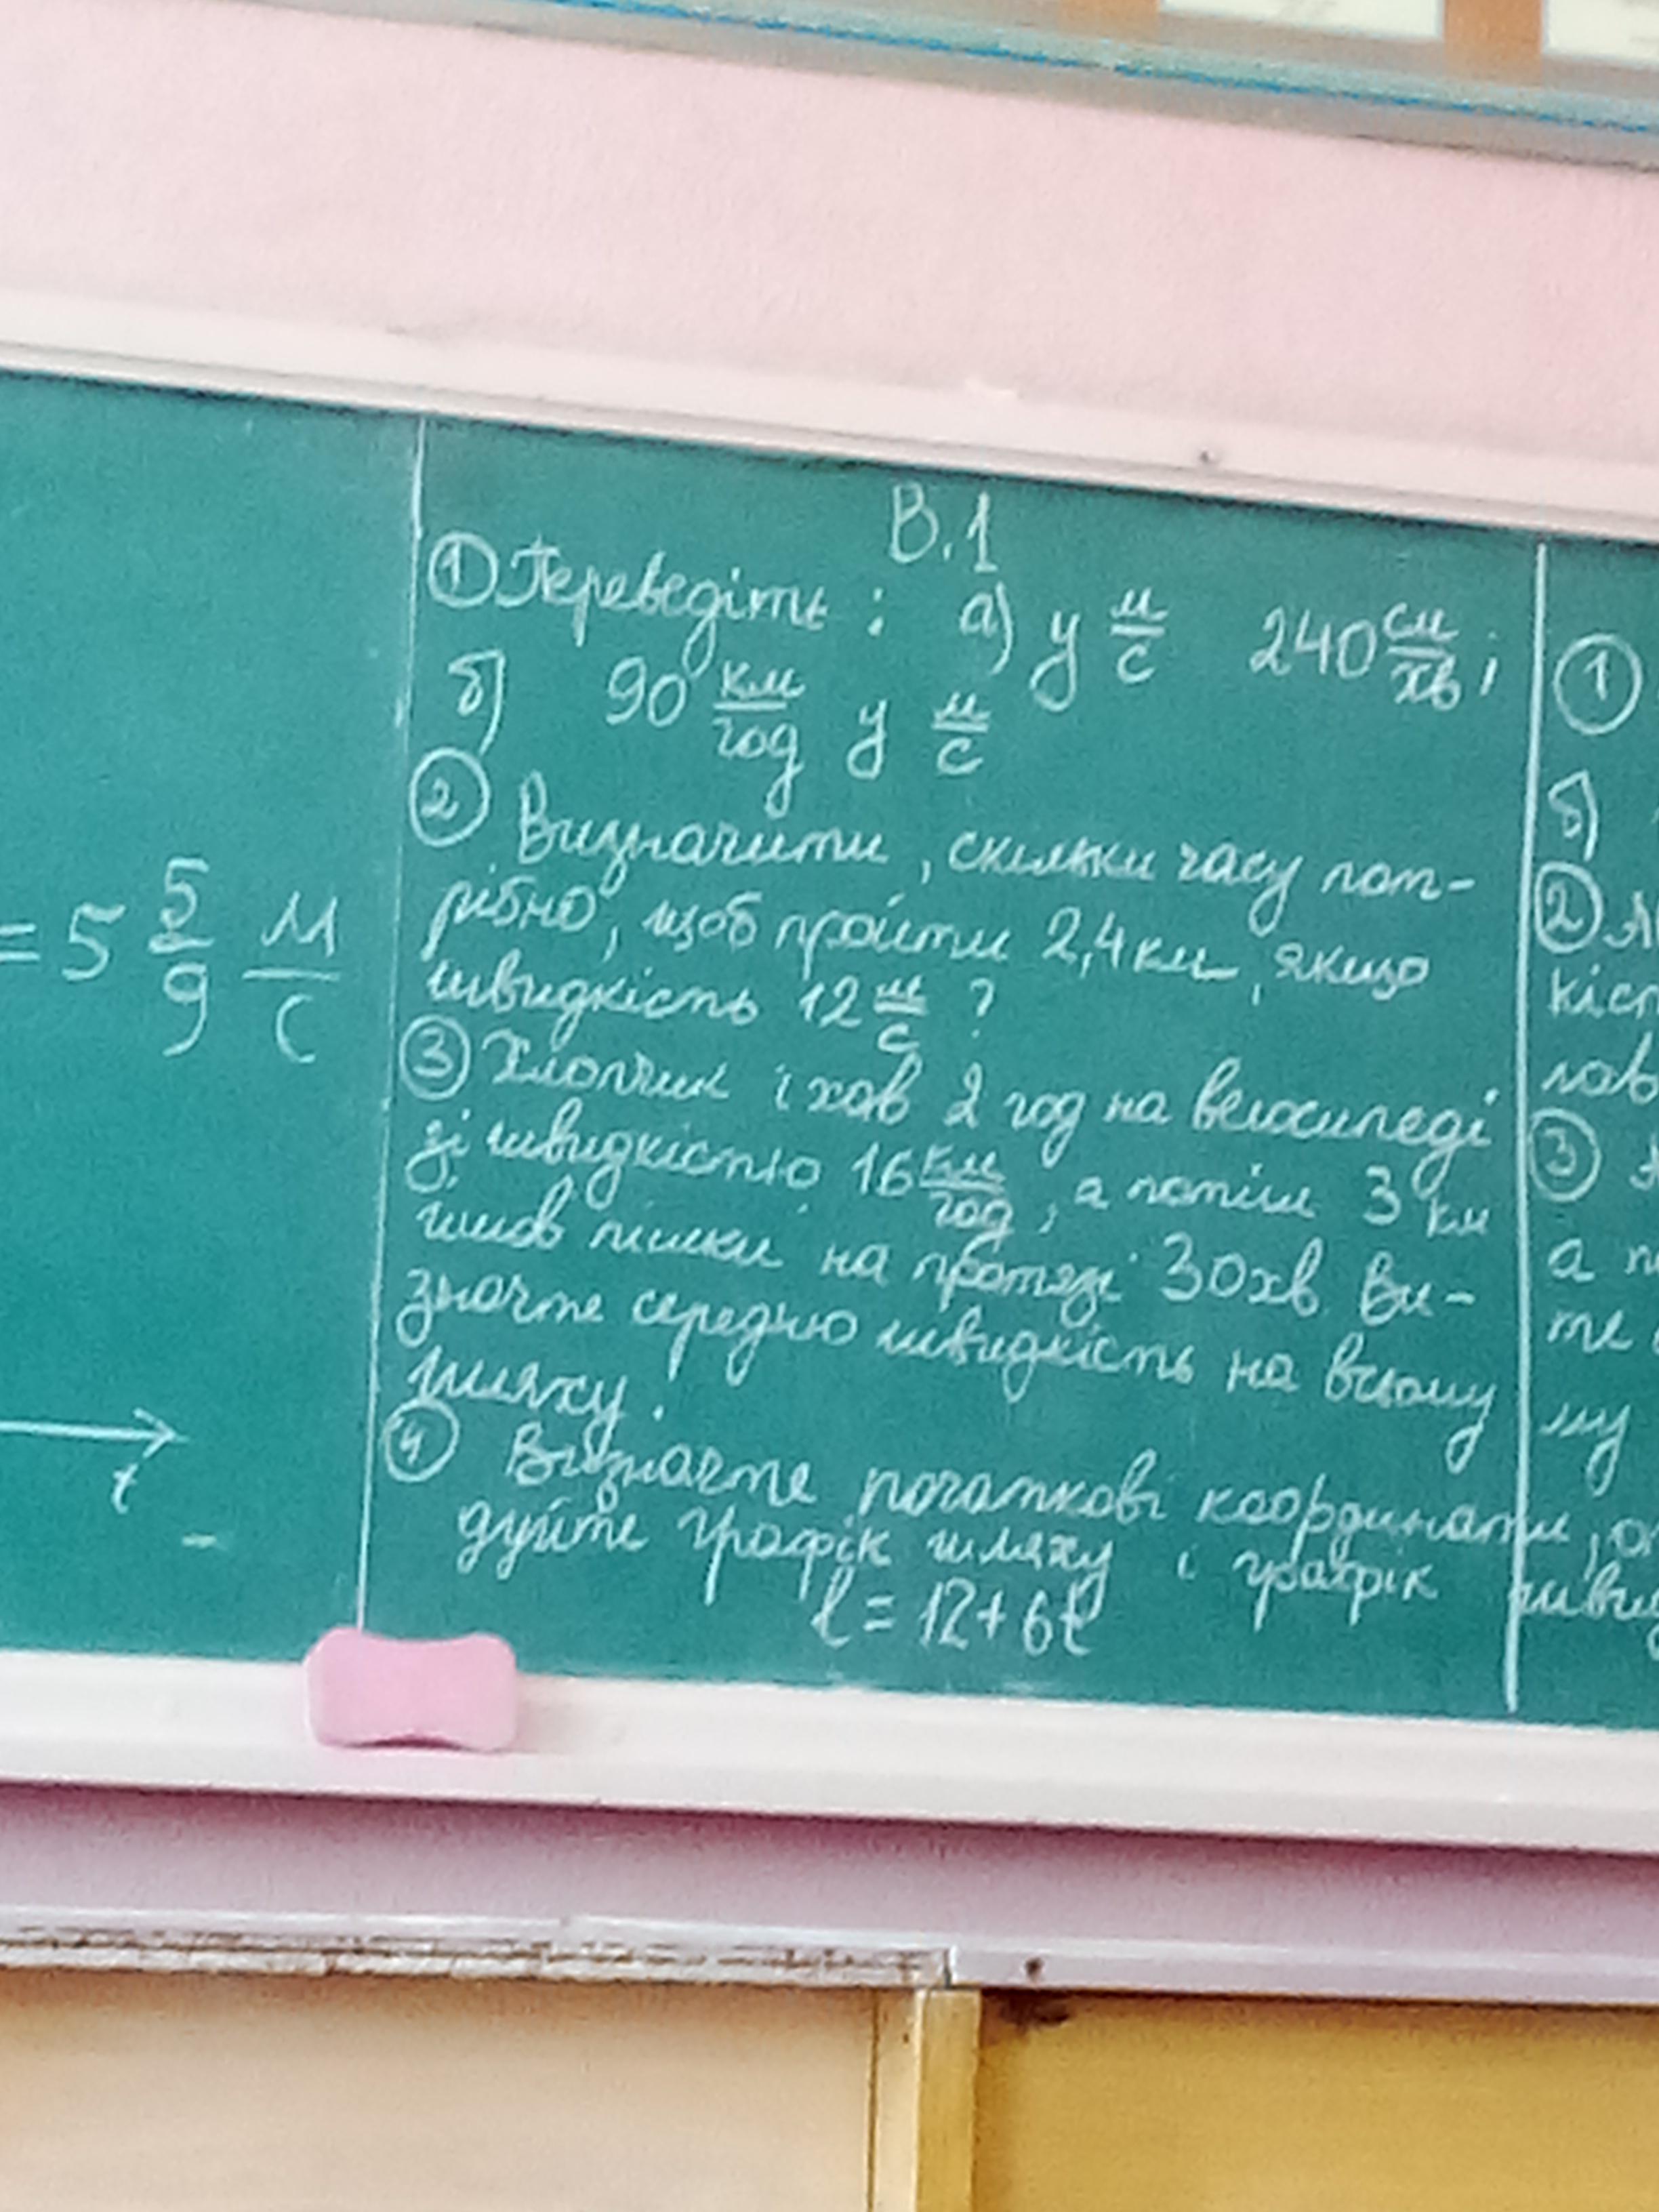 = 5 5/9 м/с
t
В.1
① Переведіть : а) у м/с 240 см/хв ;
б) 90 км/год у м/с
② Визначити, скільки часу пот-
рібно, щоб пройти 2,4 км, якщо
швидкість 12 м/с ?
③ Хлопчик їхав 2 год на велосипеді
зі швидкістю 16 км/год, а потім 3 км
йшов пішки на протязі 30 хв. Ви-
значте середню швидкість на всьому
шляху.
④ Визначте початкові координати,
дуйте графік шляху і графік
l = 12 + 6t
①
б)
②
кіст
③
а п
те
му